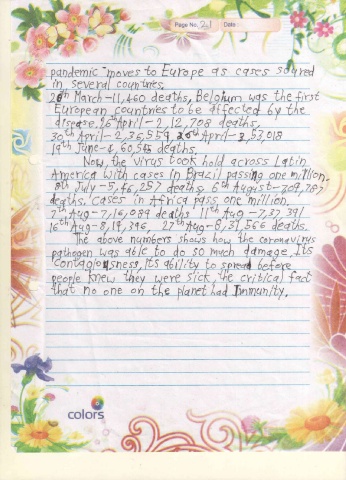 Page No. 21 Date:
pandemic moves to Europe as cases soared
in several countries.
20th March-11,460 deaths, Belghum was the first
European countries to be affected by the
disease. 16th April-2,12,708 deaths.
30th April-2,36,559, 26th April-3,53,018
19th June-4,60,545 deaths.
Now, the virus took hold across Latin
America with cases in Brazil passing one million.
8th July-5,46,257 deaths. 6th August-7,09,787
deaths. Cases in Africa pass one million.
7th Aug-7,16,089 deaths 11th Aug-7,37,391
16th Aug-8,19,396, 27th Aug-8,31,566 deaths.
The above numbers shows how the coronavirus
pathogen was able to do so much damage. Its
contagiousness, its ability to spread before
people knew they were sick, the critical fact
that no one on the planet had immunity.
colors